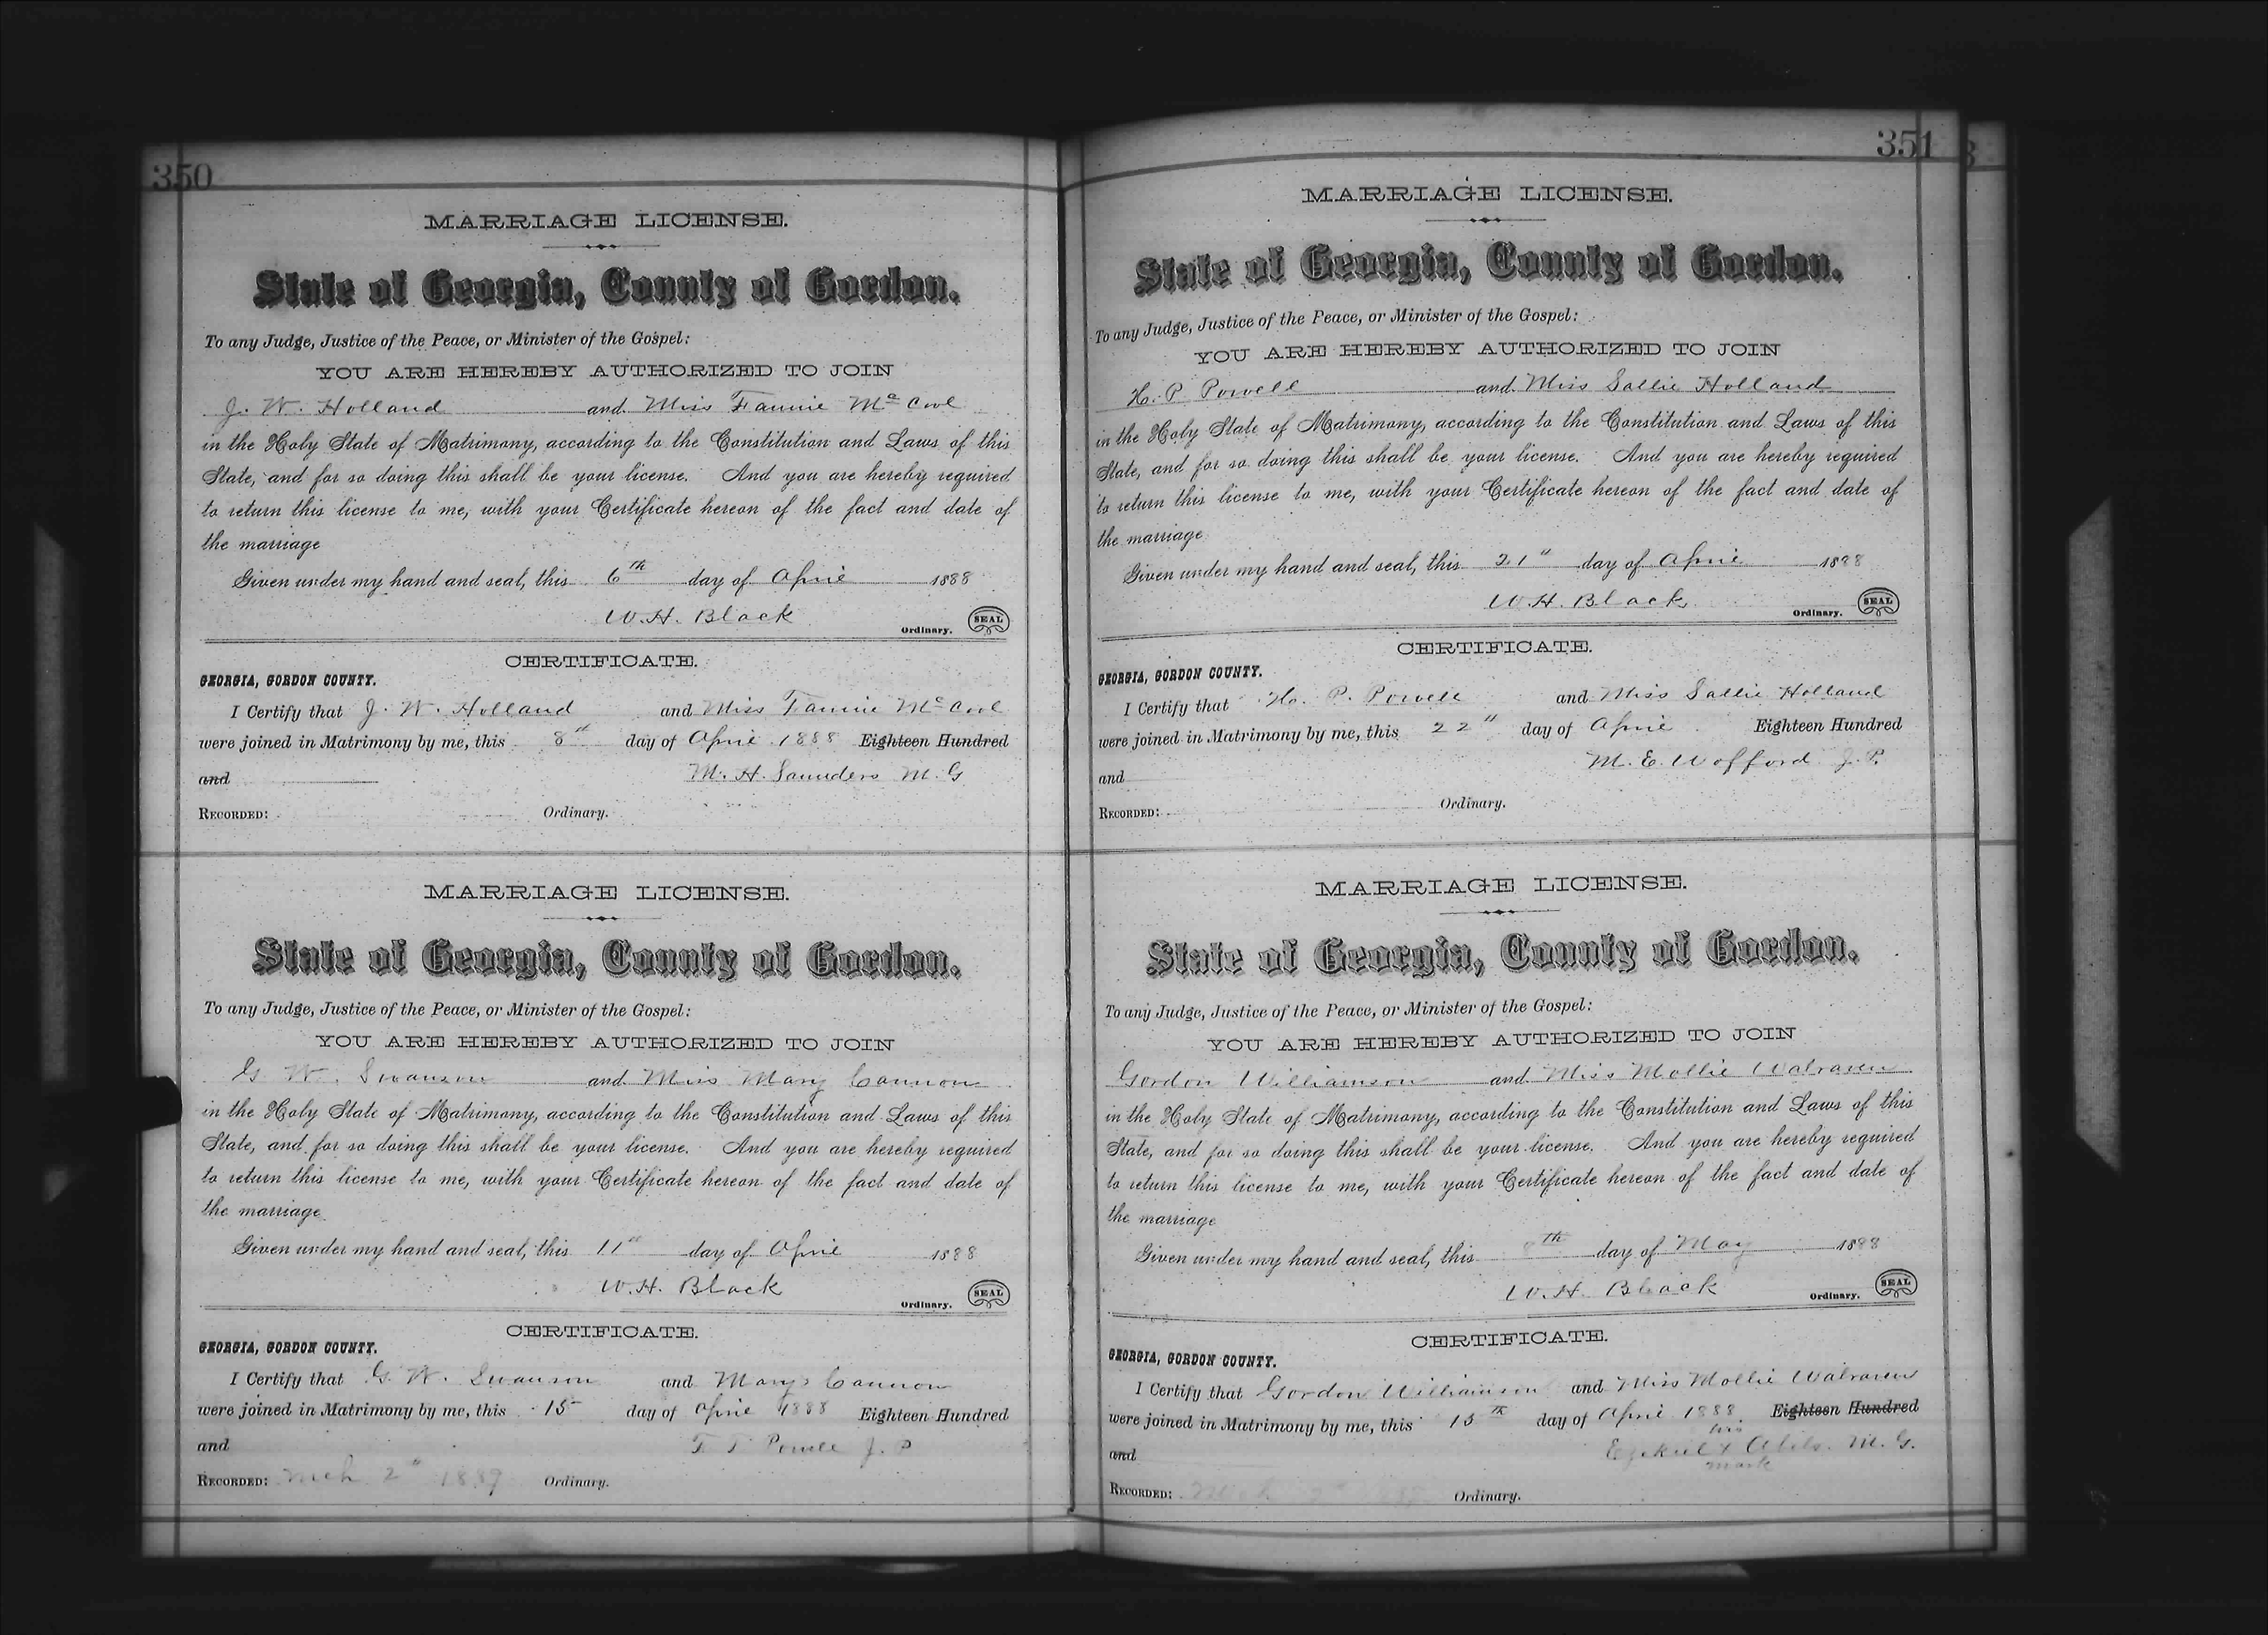 350
MARRIAGE LICENSE.
State of Georgia, County of Gordon.
To any Judge, Justice of the Peace, or Minister of the Gospel:
YOU ARE HEREBY AUTHORIZED TO JOIN
J. W. Holland and Miss Fannie McCool
in the Holy State of Matrimony, according to the Constitution and Laws of this
State, and for so doing this shall be your license. And you are hereby required
to return this license to me, with your Certificate hereon of the fact and date of
the marriage
Given under my hand and seal, this 6th day of April 1888
W. H. Black
Ordinary. SEAL
CERTIFICATE.
GEORGIA, GORDON COUNTY.
I Certify that J. W. Holland and Miss Fannie McCool
were joined in Matrimony by me, this 8th day of April 1888 Eighteen Hundred
and M. H. Saunders M. G
RECORDED: Ordinary.
MARRIAGE LICENSE.
State of Georgia, County of Gordon.
To any Judge, Justice of the Peace, or Minister of the Gospel:
YOU ARE HEREBY AUTHORIZED TO JOIN
G. W. Swanson and Miss Mary Cannon
in the Holy State of Matrimony, according to the Constitution and Laws of this
State, and for so doing this shall be your license. And you are hereby required
to return this license to me, with your Certificate hereon of the fact and date of
the marriage
Given under my hand and seal, this 11th day of April 1888
W. H. Black
Ordinary. SEAL
CERTIFICATE.
GEORGIA, GORDON COUNTY.
I Certify that G. W. Swanson and Mary Cannon
were joined in Matrimony by me, this 15 day of April 1888 Eighteen Hundred
and T. T. Powell J. P
RECORDED: Mch 2d 1889 Ordinary.
351
MARRIAGE LICENSE.
State of Georgia, County of Gordon.
To any Judge, Justice of the Peace, or Minister of the Gospel:
YOU ARE HEREBY AUTHORIZED TO JOIN
H. P. Powell and Miss Sallie Holland
in the Holy State of Matrimony, according to the Constitution and Laws of this
State, and for so doing this shall be your license. And you are hereby required
to return this license to me, with your Certificate hereon of the fact and date of
the marriage
Given under my hand and seal, this 21" day of April 1888
W. H. Black
Ordinary. SEAL
CERTIFICATE.
GEORGIA, GORDON COUNTY.
I Certify that H. P. Powell and Miss Sallie Holland
were joined in Matrimony by me, this 22" day of April Eighteen Hundred
and M. E. Wofford J. P.
RECORDED: Ordinary.
MARRIAGE LICENSE.
State of Georgia, County of Gordon.
To any Judge, Justice of the Peace, or Minister of the Gospel:
YOU ARE HEREBY AUTHORIZED TO JOIN
Gordon Williamson and Miss Mollie Walraven
in the Holy State of Matrimony, according to the Constitution and Laws of this
State, and for so doing this shall be your license. And you are hereby required
to return this license to me, with your Certificate hereon of the fact and date of
the marriage
Given under my hand and seal, this th day of May 1888
W. H. Black
Ordinary. SEAL
CERTIFICATE.
GEORGIA, GORDON COUNTY.
I Certify that Gordon Williamson and Miss Mollie Walraven
were joined in Matrimony by me, this 15th day of April 1888 Eighteen Hundred
his
and Ezekiel x M. G.
mark
RECORDED: Ordinary.